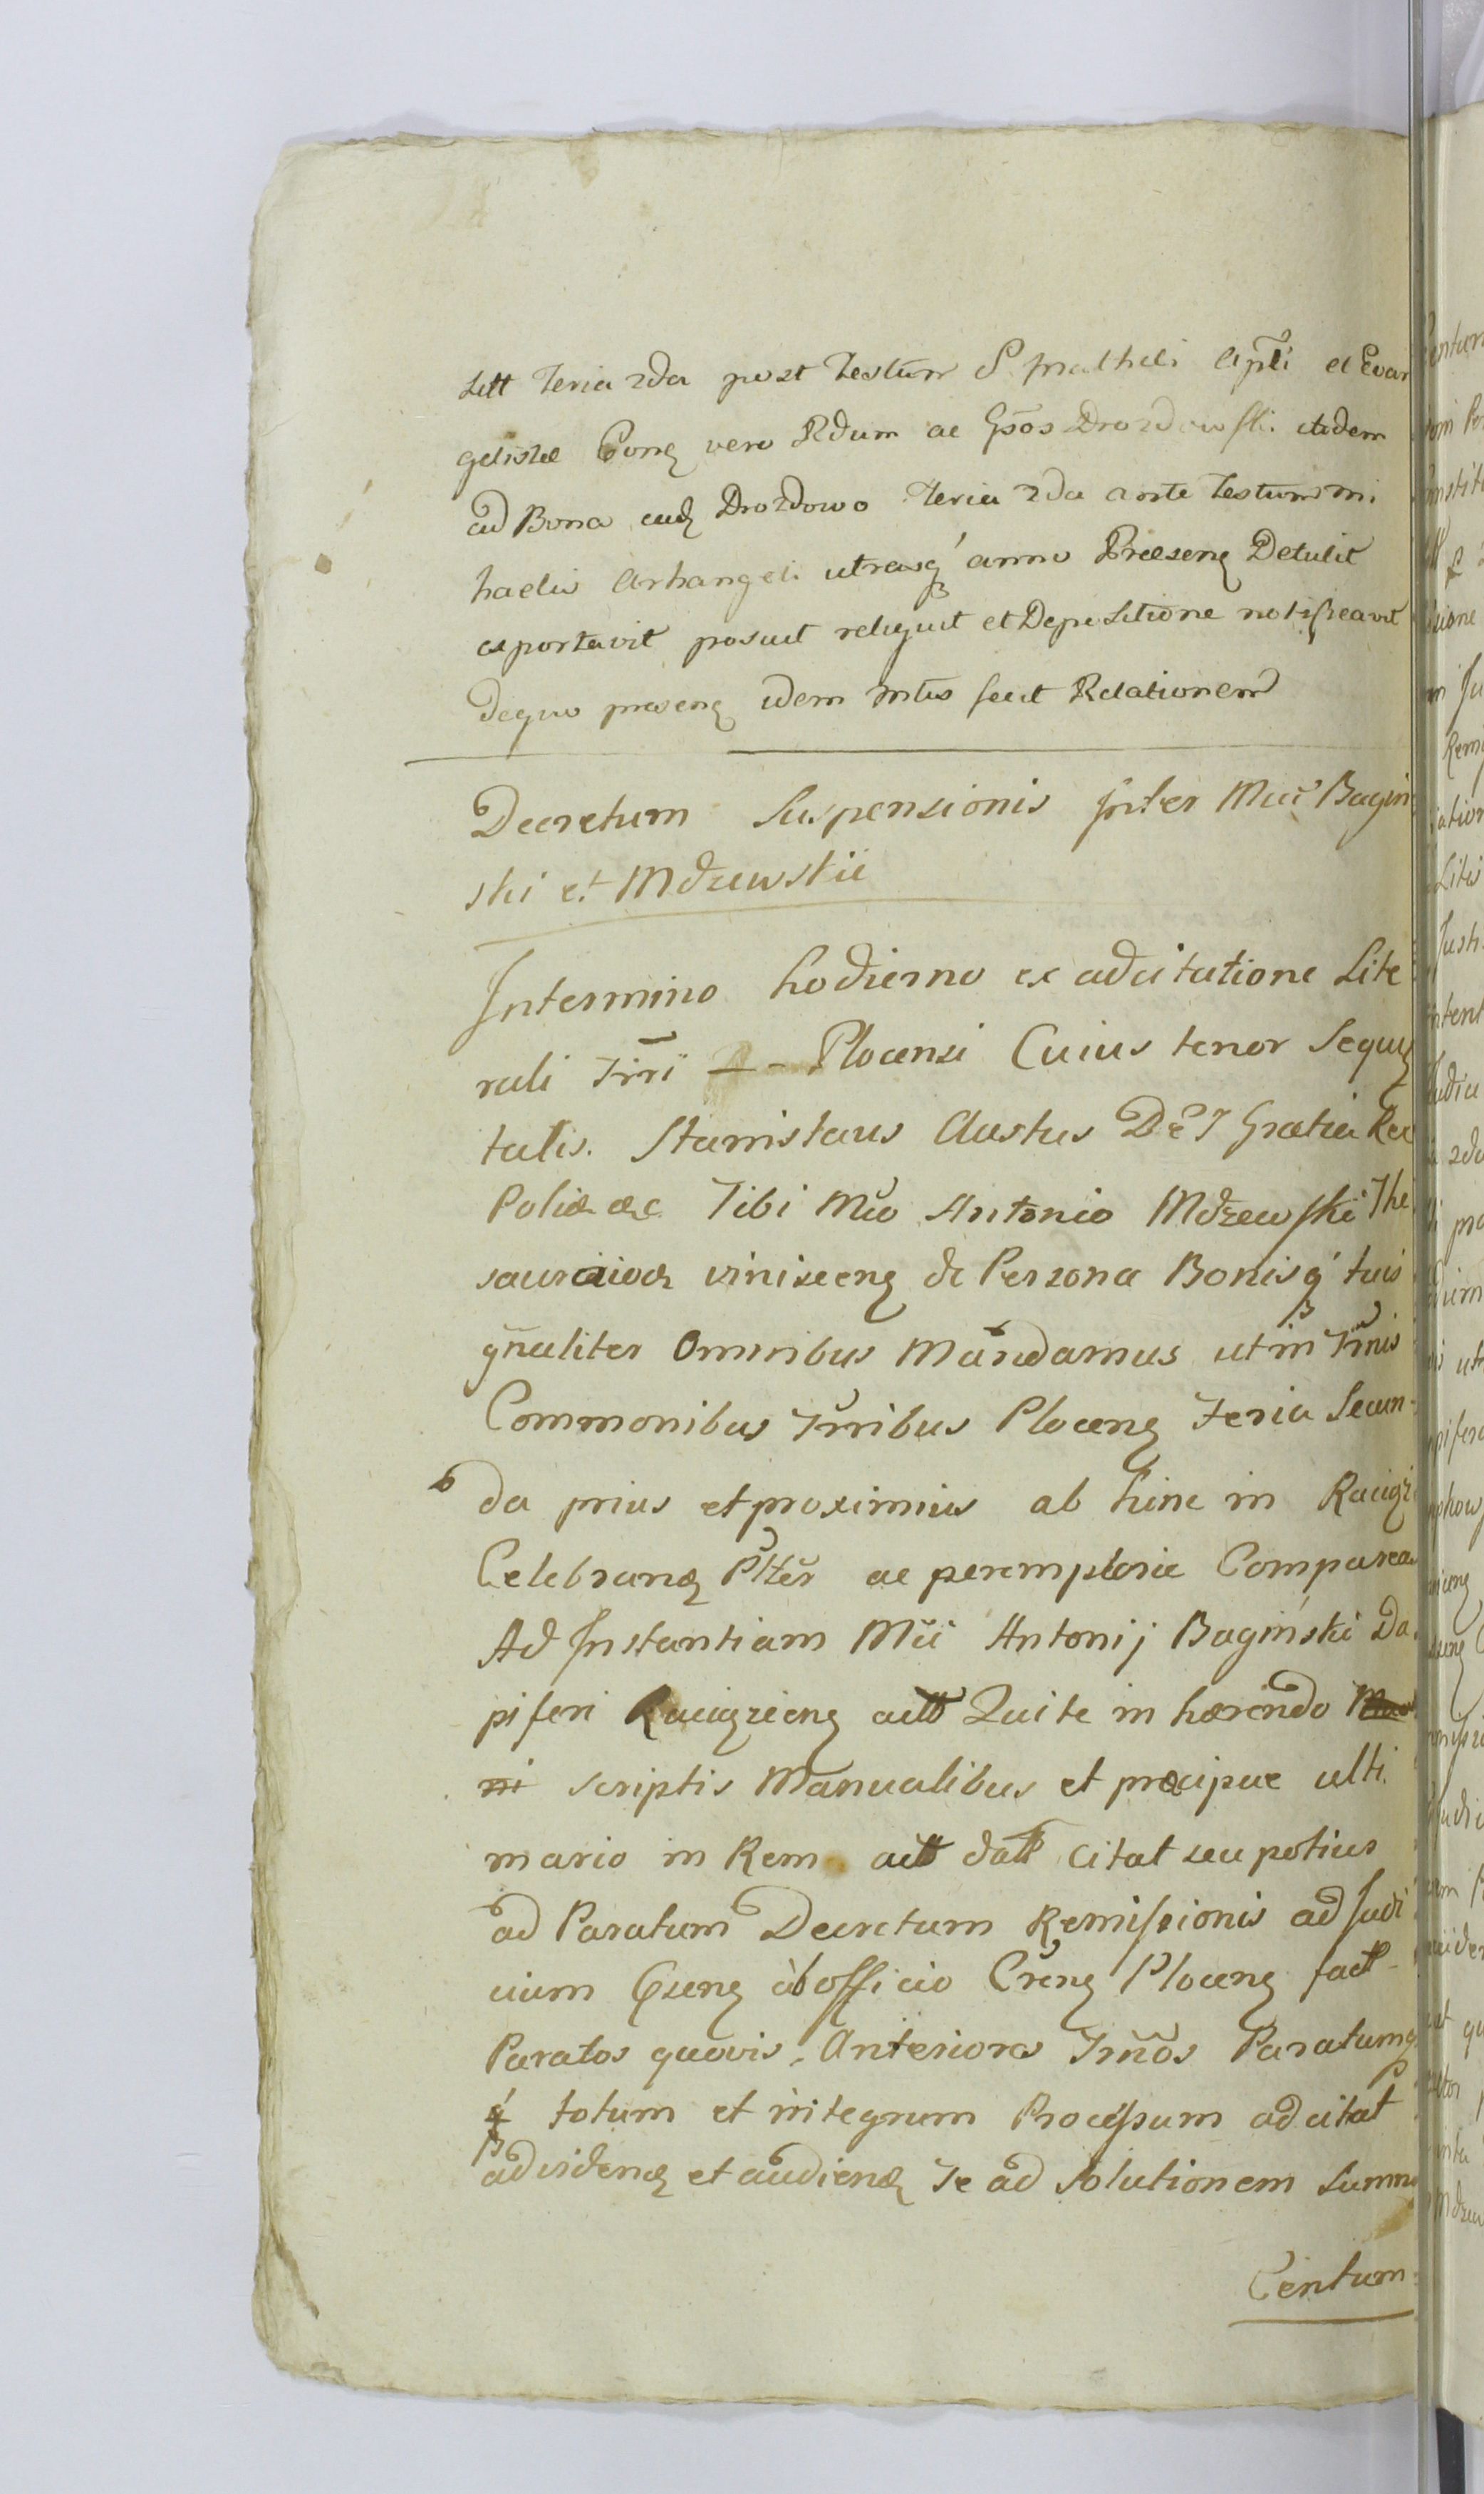 sitt Feria 2da post Festum S. Mathei Apli et Evan
gelistæ Conq vero Rdum ac Gsos Drozdowski itidem
ad Bona eadq Drozdowo Feria 2da ante Festum Mi
haelis Arhangeli utrasq anno Præsenq Detulit
exportavit posuit reliquit et Depositione notificavit
dequo præsenq idem mtis fecit Relationem
Decretum Suspensionis Inter Mcū Bagin
ski et Mdzewskii
Intermino hodierno ex adcitatione Lite
rali Trri - Plocensi Cuius tenor Sequq
talis. Stanislaus Austus Dei Gratia Rex
Poliæ &c Tibi Mco Antonio Mdzewski The
saurariovq viniscenq de Persona Bonisq tuis
gnaliter Omnibus Mandamus ut in Trmis
Commonibus Trribus Plocenq Feria Secun-
da prius et proximius ab hinc in Raciąz
Celebranq Pltèr ac peremptorie Comparea
Ad Instantiam Mci Antonij Baginski Da
piferi Raciązienq actt Qui te in hærendo
scriptis Manualibus et præcipue ulti
mario in Rem actt datt citat seu potius
ad Paratum Decretum Remissionis ad Judi
cium Gsenq ab officio Crenq Plocenq fact
Paratos quovis Anteriora Trmos Paratumq
totum et integrum Processum adcitat
ad videnq et audienq Te ad Solutionem Summ
Centum